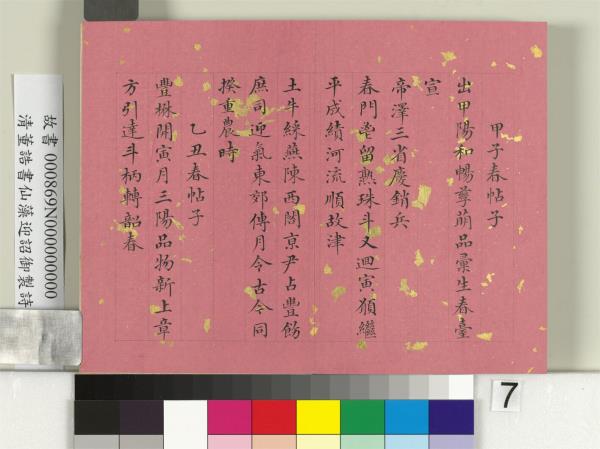 甲子春帖子
出甲陽和暢荂萌品彙生春臺
宣
帝澤三省慶銷兵
春門壘留熟珠斗又迴寅頫繼
平成績河流順故津
土牛綵蕪陳西閣京尹占豐飭
庶司迎氣東郊傳月令古今同
揆重農時
乙丑春帖子
豐楙開寅月三陽品物新上章
方引達斗柄轉韶春
故書 000869N000000000
清董誥書仙藻迎韶御製詩
7